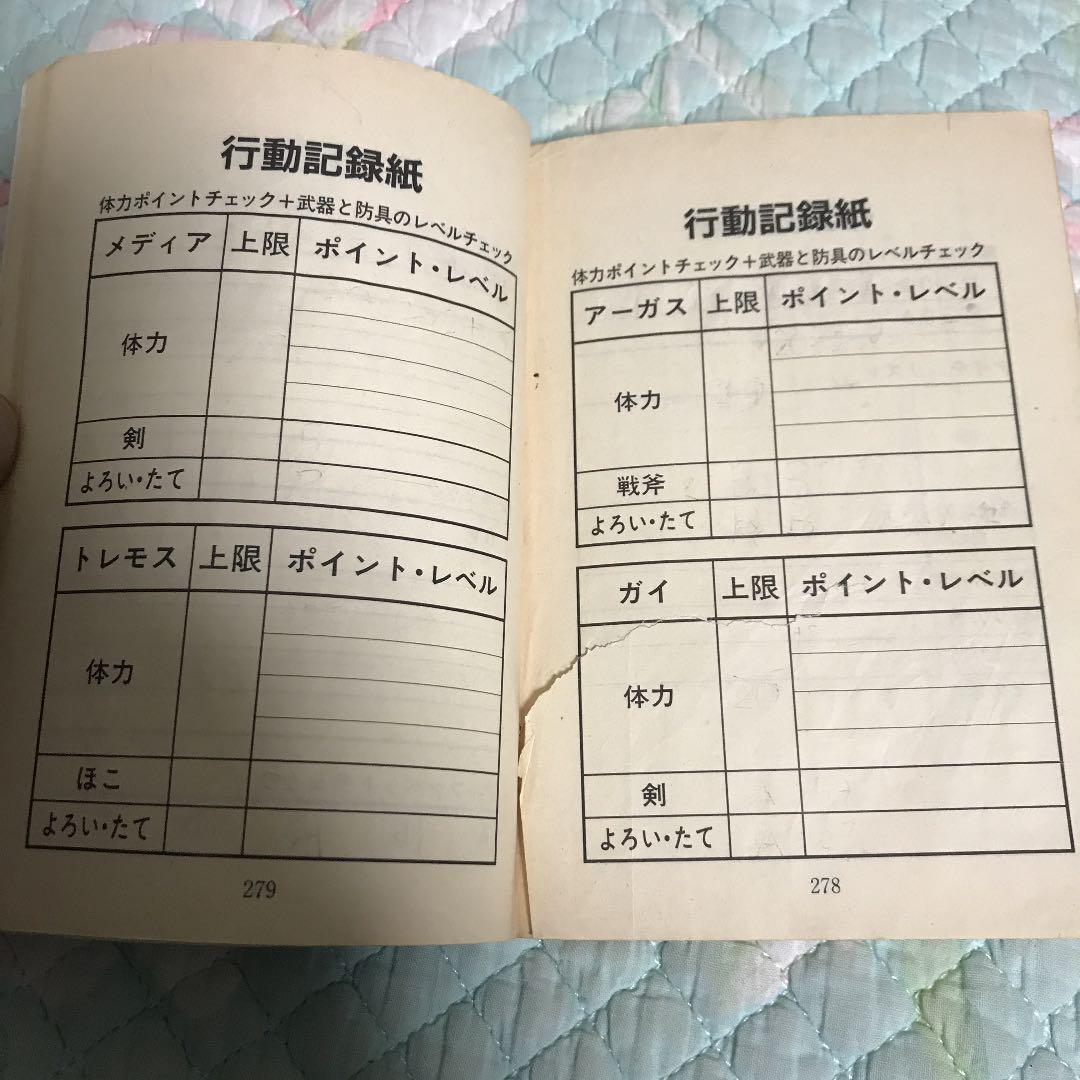 行動記録紙
体力ポイントチェック+武器と防具のレベルチェック
アーガス 上限 ポイント・レベル
体力
戦斧
よろい・たて
ガイ 上限 ポイント・レベル
体力
剣
よろい・たて
278
行動記録紙
体力ポイントチェック+武器と防具のレベルチェック
メディア 上限 ポイント・レベル
体力
剣
よろい・たて
トレモス 上限 ポイント・レベル
体力
ほこ
よろい・たて
279